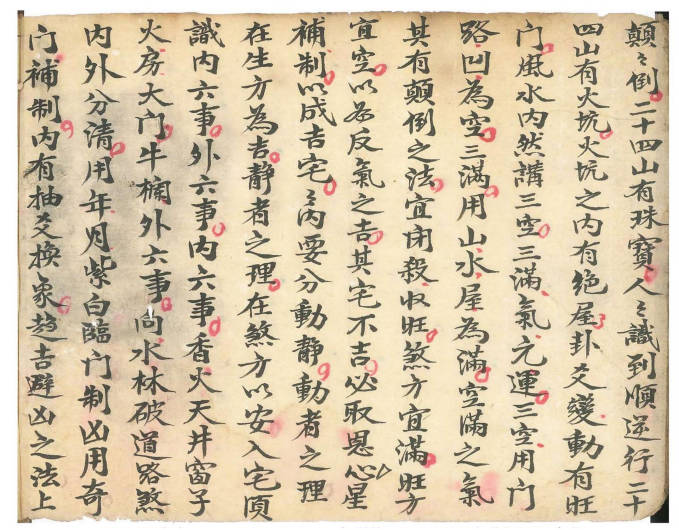 顛〻倒二十四山有珠寶人〻識到順逆行二十
四山有火坑火坑之内有绝屋卦爻變動有旺
门風水内然講三空三满氣元運三空用门
路凹為空三满用山水屋為满空满之氣
其有顛倒之法宜闭殺收旺煞方宜满旺方
宜空以為反氣之吉其宅不吉必取恩心星
補制以成吉宅〻内要分動静動者之理
在生方為吉静者之理在煞方以安入宅須
識内六事外六事内六事香火天井窗子
火房大门牛榈外六事向水林破道路煞
内外分清用年月紫白臨门制凶用奇
门補制内有抽爻换象趋吉避凶之法上